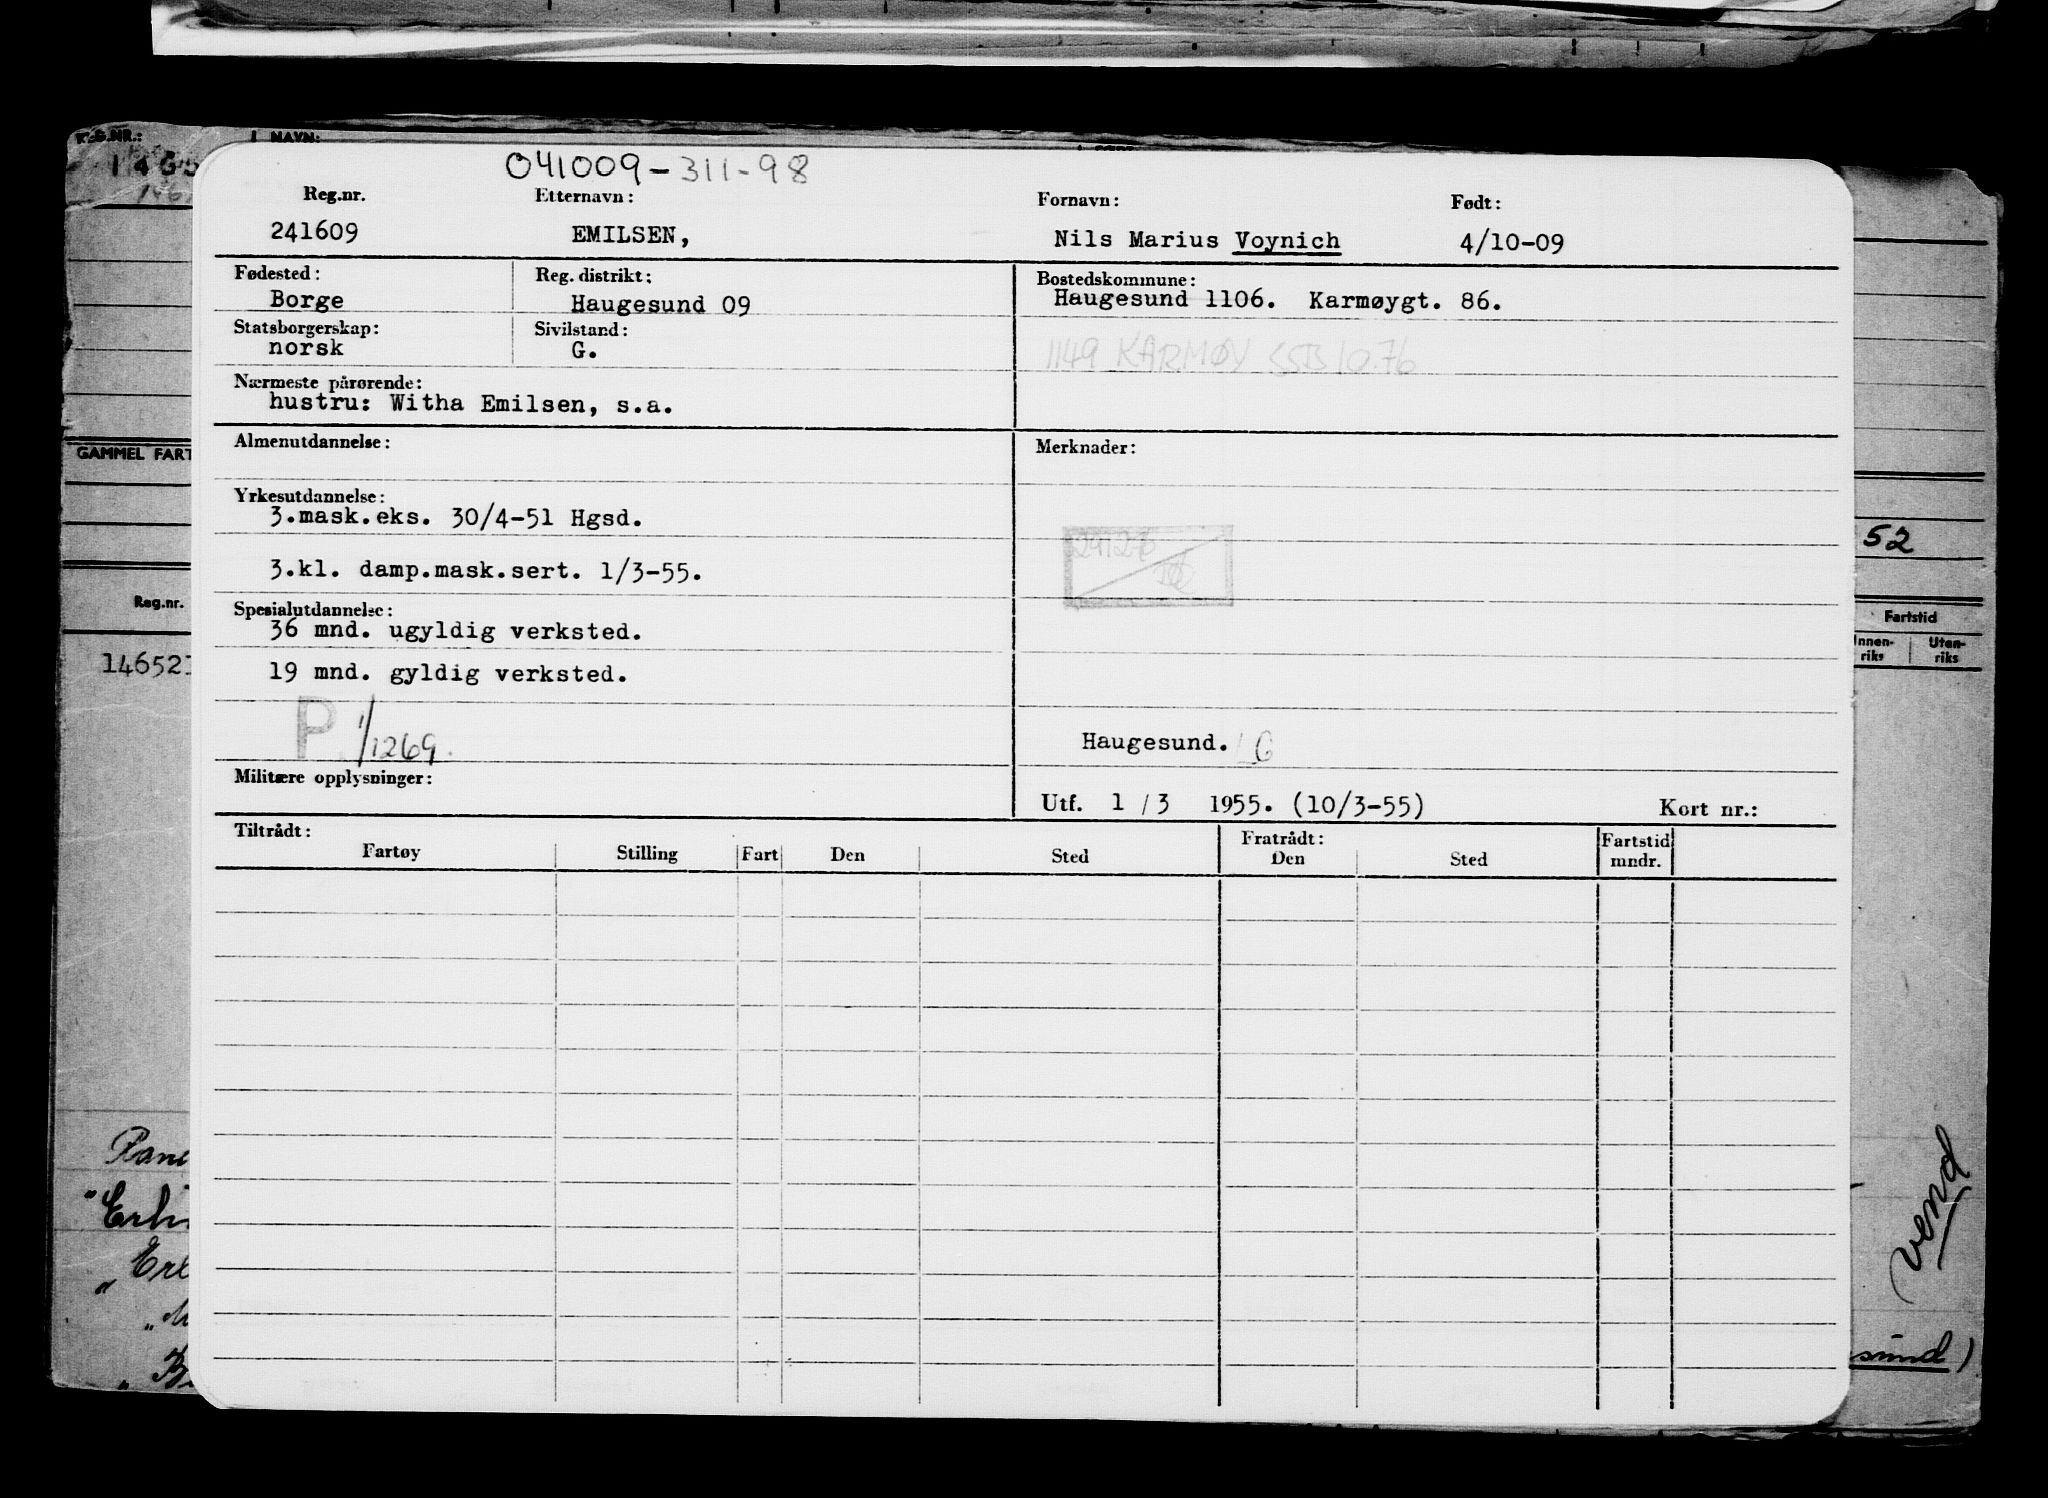 REG.NR.: NAVN:
041009-311-98
Reg.nr. Etternavn: Fornavn: Født:
241609 EMILSEN, Nils Marius Voynich 4/10-09
Fødested: Reg. distrikt: Bostedskommune:
Borge Haugesund 09 Haugesund 1106. Karmøygt. 86.
Statsborgerskap: Sivilstand:
norsk G. 1149 KARMØY SSB 10.76
Nærmeste pårørende:
hustru: Witha Emilsen, s.a.
Almenutdannelse: Merknader:
GAMMEL FART
Yrkesutdannelse:
3.mask.eks. 30/4-51 Hgsd.
52
3.kl. damp.mask.sert. 1/3-55.
Reg.nr. Spesialutdannelse: Fartstid
36 mnd. ugyldig verksted. Innen-riks Uten-riks
146521 19 mnd. gyldig verksted.
P 1/1269.
Haugesund. G
Militære opplysninger:
Utf. 1 / 3 1955. (10/3-55) Kort nr.:
Tiltrådt: Fratrådt: Fartstid
Fartøy Stilling Fart Den Sted Den Sted mndr.
vend
sund)